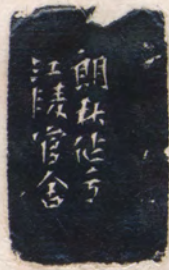 朗秋作于
江陵官舍